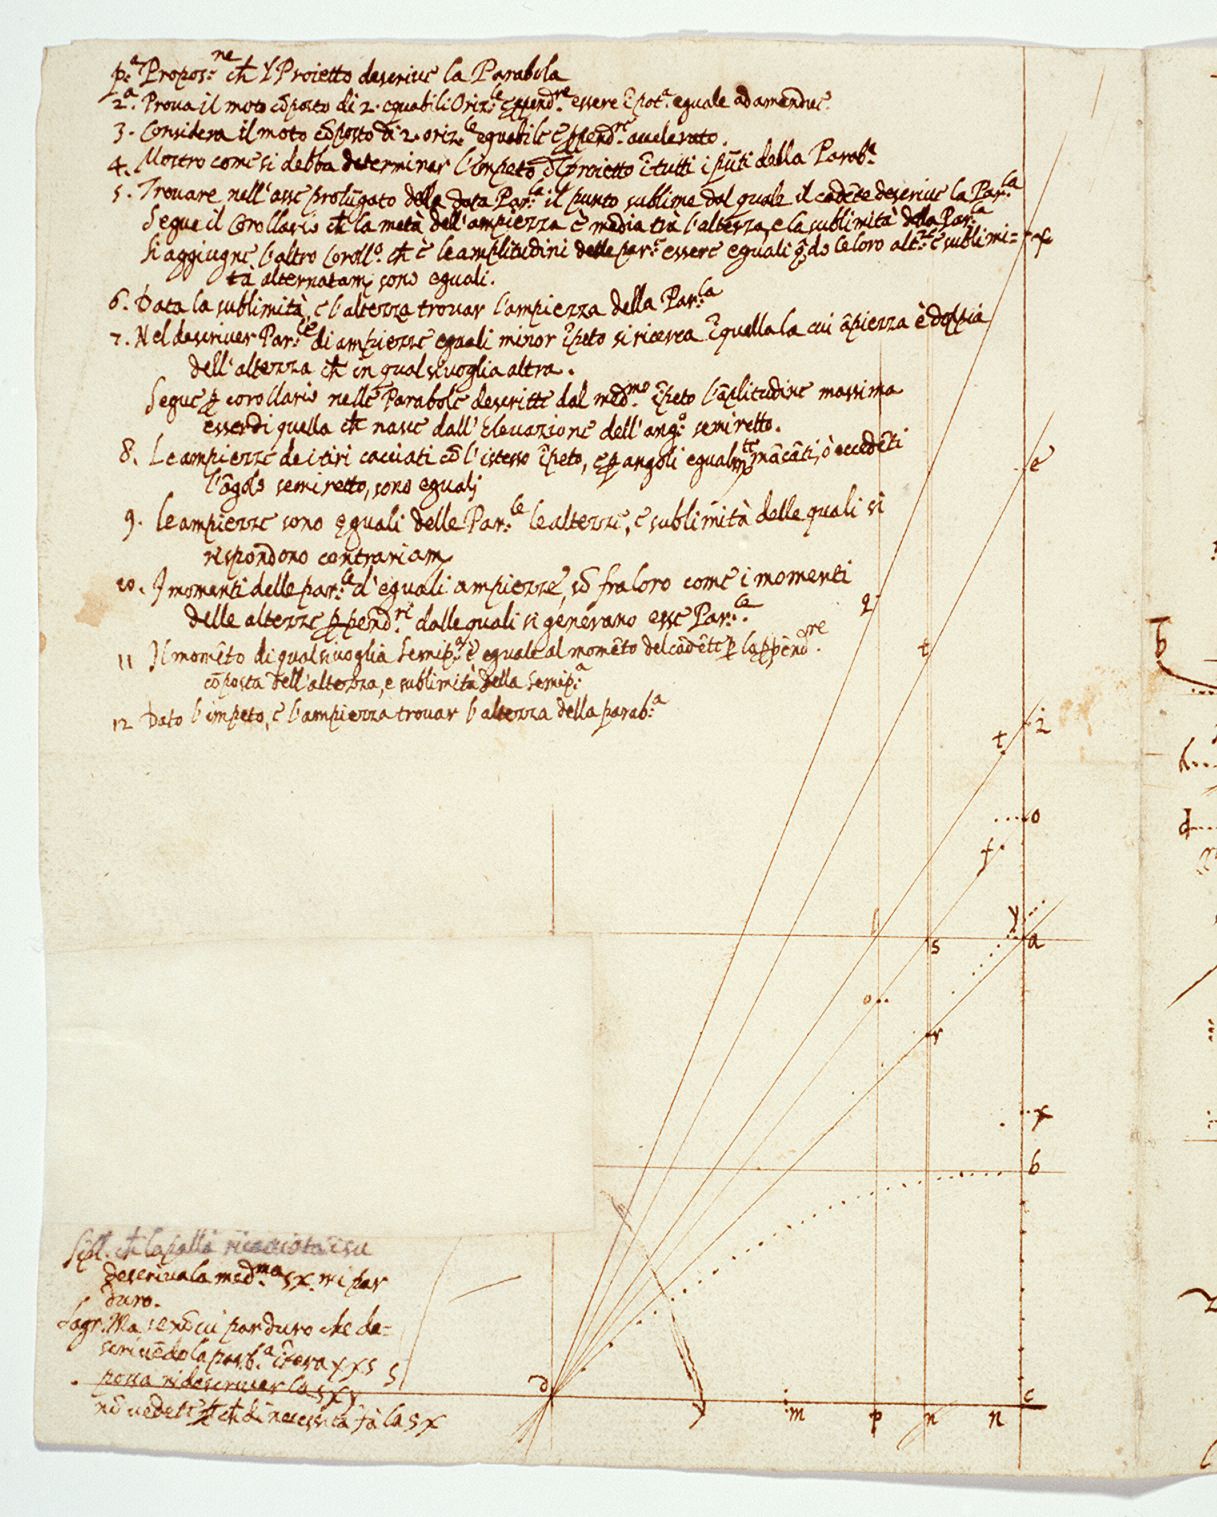 p.ª Propos.ne ch̄ Y Proietto descriue la Parabola
2.ª Proua il moto cõposto di 2. equabili Oriz.le e ꝑpend.re essere ĩ pot.ª eguale ad amendue.
3. Considera il moto cõposto di 2. oriz.le equabile e ꝑpend.re accelerato.
4. Mostro come si debba determinar l'impeto del proietto ĩ tutti i pũti della Parab.ª
5. Trouare nell'asse prolũgato della data Par.la il punto sublime dal quale il cadẽte descriue la Par.la
Segue il Corollario ch̄ la metà dell'ampiezza è media trà l'altezza, e la sublimità della Par.la
Si aggiugne l'altro Coroll.º ch̄ è le amplitudini delle par.e essere eguali q̃do le loro alt.ze e sublimi=
tà alternatam̃ sono eguali.
6. Data la sublimità, e l'altezza trouar l'ampiezza della Par.la
7. Nel descriuer Par.le di ampiezze eguali minor ĩpeto si ricerca ĩ quella la cui ãpiezza è doppia
dell'altezza ch̄ in qual si uoglia altra.
Segue ꝑ corollario nelle Parabole descritte dal med.mo ĩpeto l'ãplitudine massima
esser di quella ch̄ nasce dall'Eleuazione dell'ang.º semiretto.
8. Le ampiezze de i tiri cacciati cõ l'istesso ĩpeto, e ꝑ angoli egualm.te mãcãti, ò eccedẽti
l'ãgolo semiretto, sono eguali
9. Le ampiezze sono eguali delle Par.le le altezze, e sublimità delle quali si
rispondono contrariam̃
10. I momenti delle par.le d'eguali ampiezze, sõ fra loro come i momenti
delle altezze ꝑpend.ri dalle quali si generano esse Par.le
11 Il momẽto di qual si uoglia Semip.ª è eguale al momẽto del cadẽte ꝑ la ꝑpẽd.re
cõposta dell'altezza, e sublimità della Semip.ª
12 Dato l'impeto, e l'ampiezza trouar l'altezza della parab.ª
e
q
t
t
i
o
f
l
y
s
a
o
r
x
b
Sipl. ch̄ la palla ricacciata ĩ su
descriua la med.ma sx mi par
duro.
Sagr. Ma se nõ ui par duro che de=
scriuẽdo la par.b.ª ĩtera yxs
possa ridescriuer la sxy
nõ uedete ch̄ di necessità fà la sx
s
d
y
m
p
n
n
c
b
d